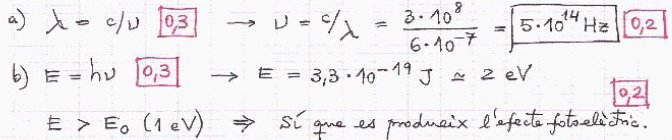 a) λ = c/ν 0,3 → ν = c/λ = 3·10⁸ / 6·10⁻⁷ = 5·10¹⁴ Hz 0,2
b) E = hν 0,3 → E = 3,3·10⁻¹⁹ J ≃ 2 eV
0,2
E > E₀ (1 eV) ⇒ Sí que es produeix l'efecte fotoelèctric.